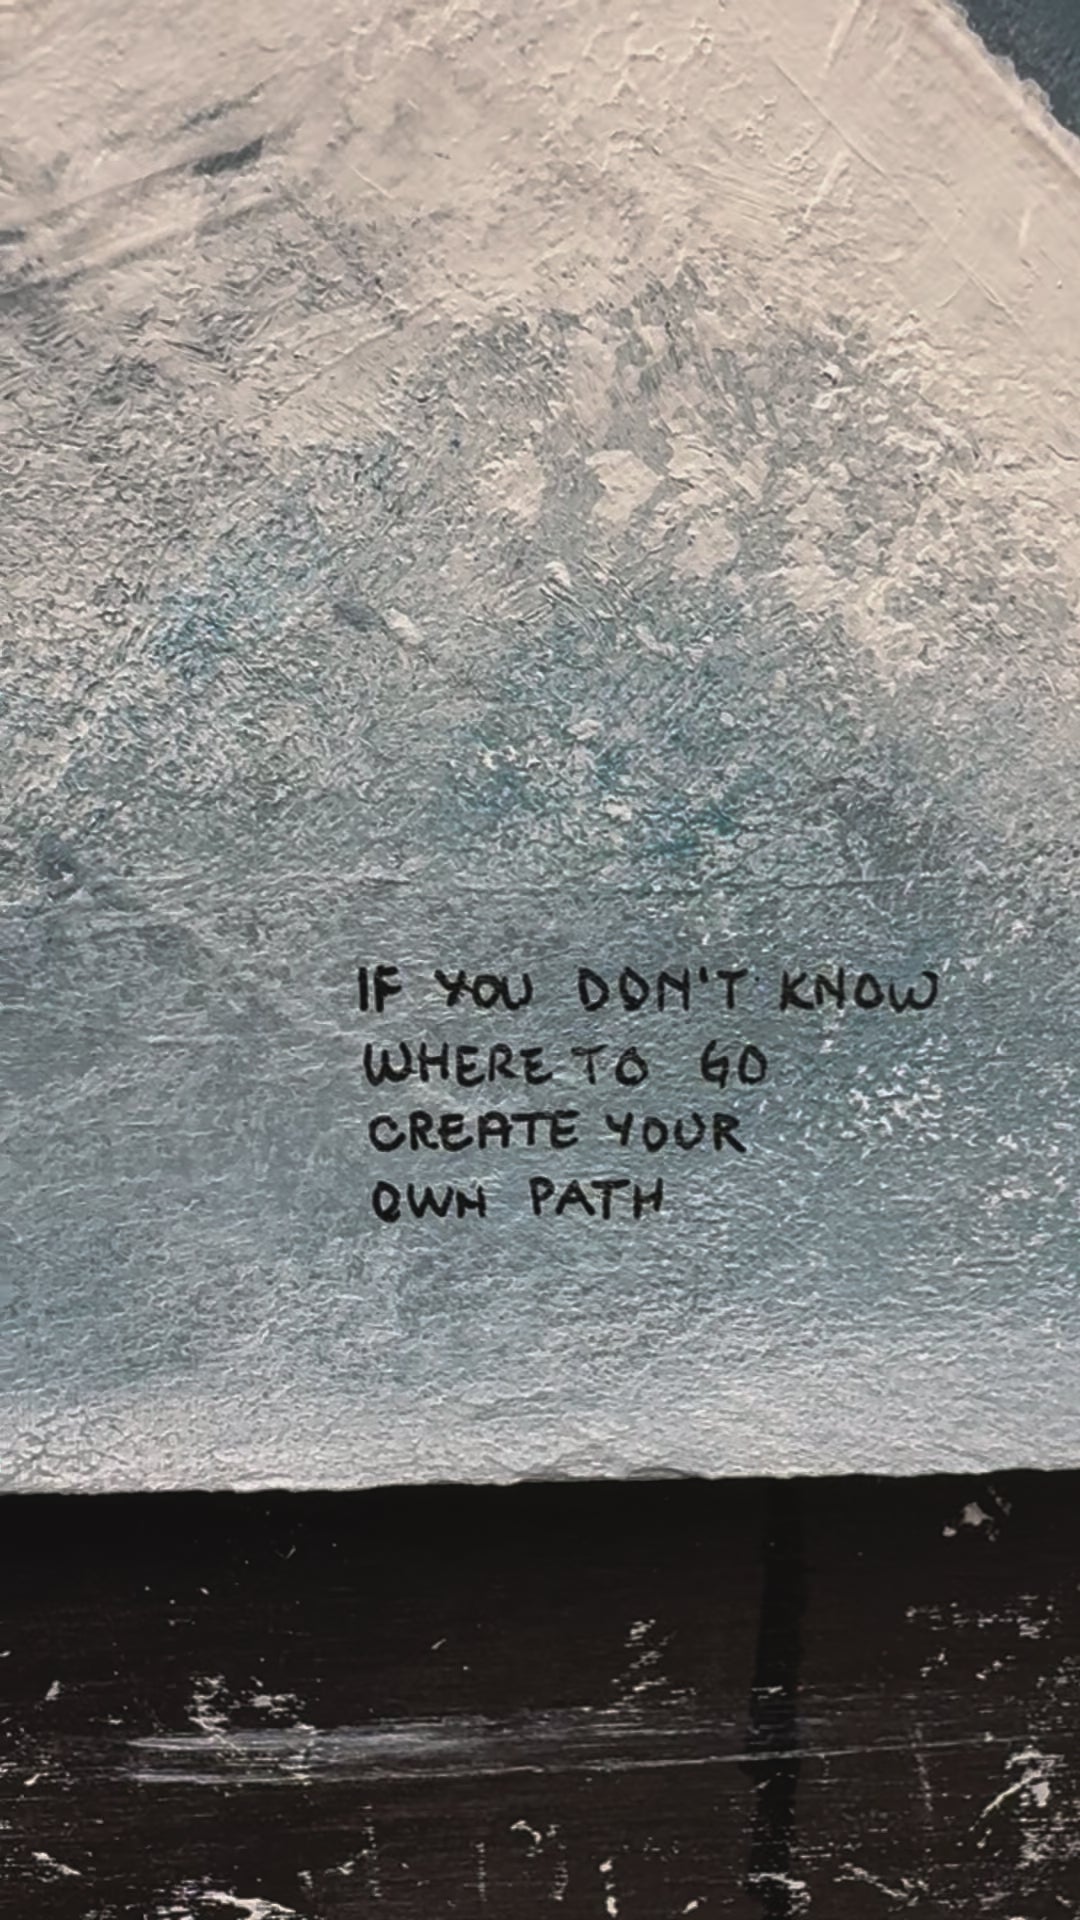 IF YOU DON'T KNOW
WHERE TO GO
CREATE YOUR
OWN PATH